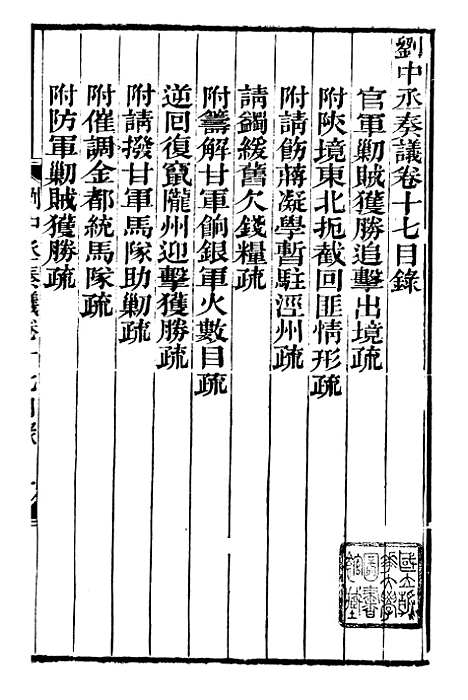 劉中丞奏議卷十七目錄
官軍勦賊獲勝追擊出境疏
附陝境東北扼截回匪情形疏
附請飭蔣凝學暫駐涇州疏
請蠲緩舊欠錢糧疏
附籌解甘軍餉銀軍火數目疏
逆回復竄隴州迎擊獲勝疏
附請撥甘軍馬隊助勦疏
附催調金都統馬隊疏
附防軍勦賊獲勝疏
劉中丞奏議卷十七目錄
國立清
華大學
圖書
館藏